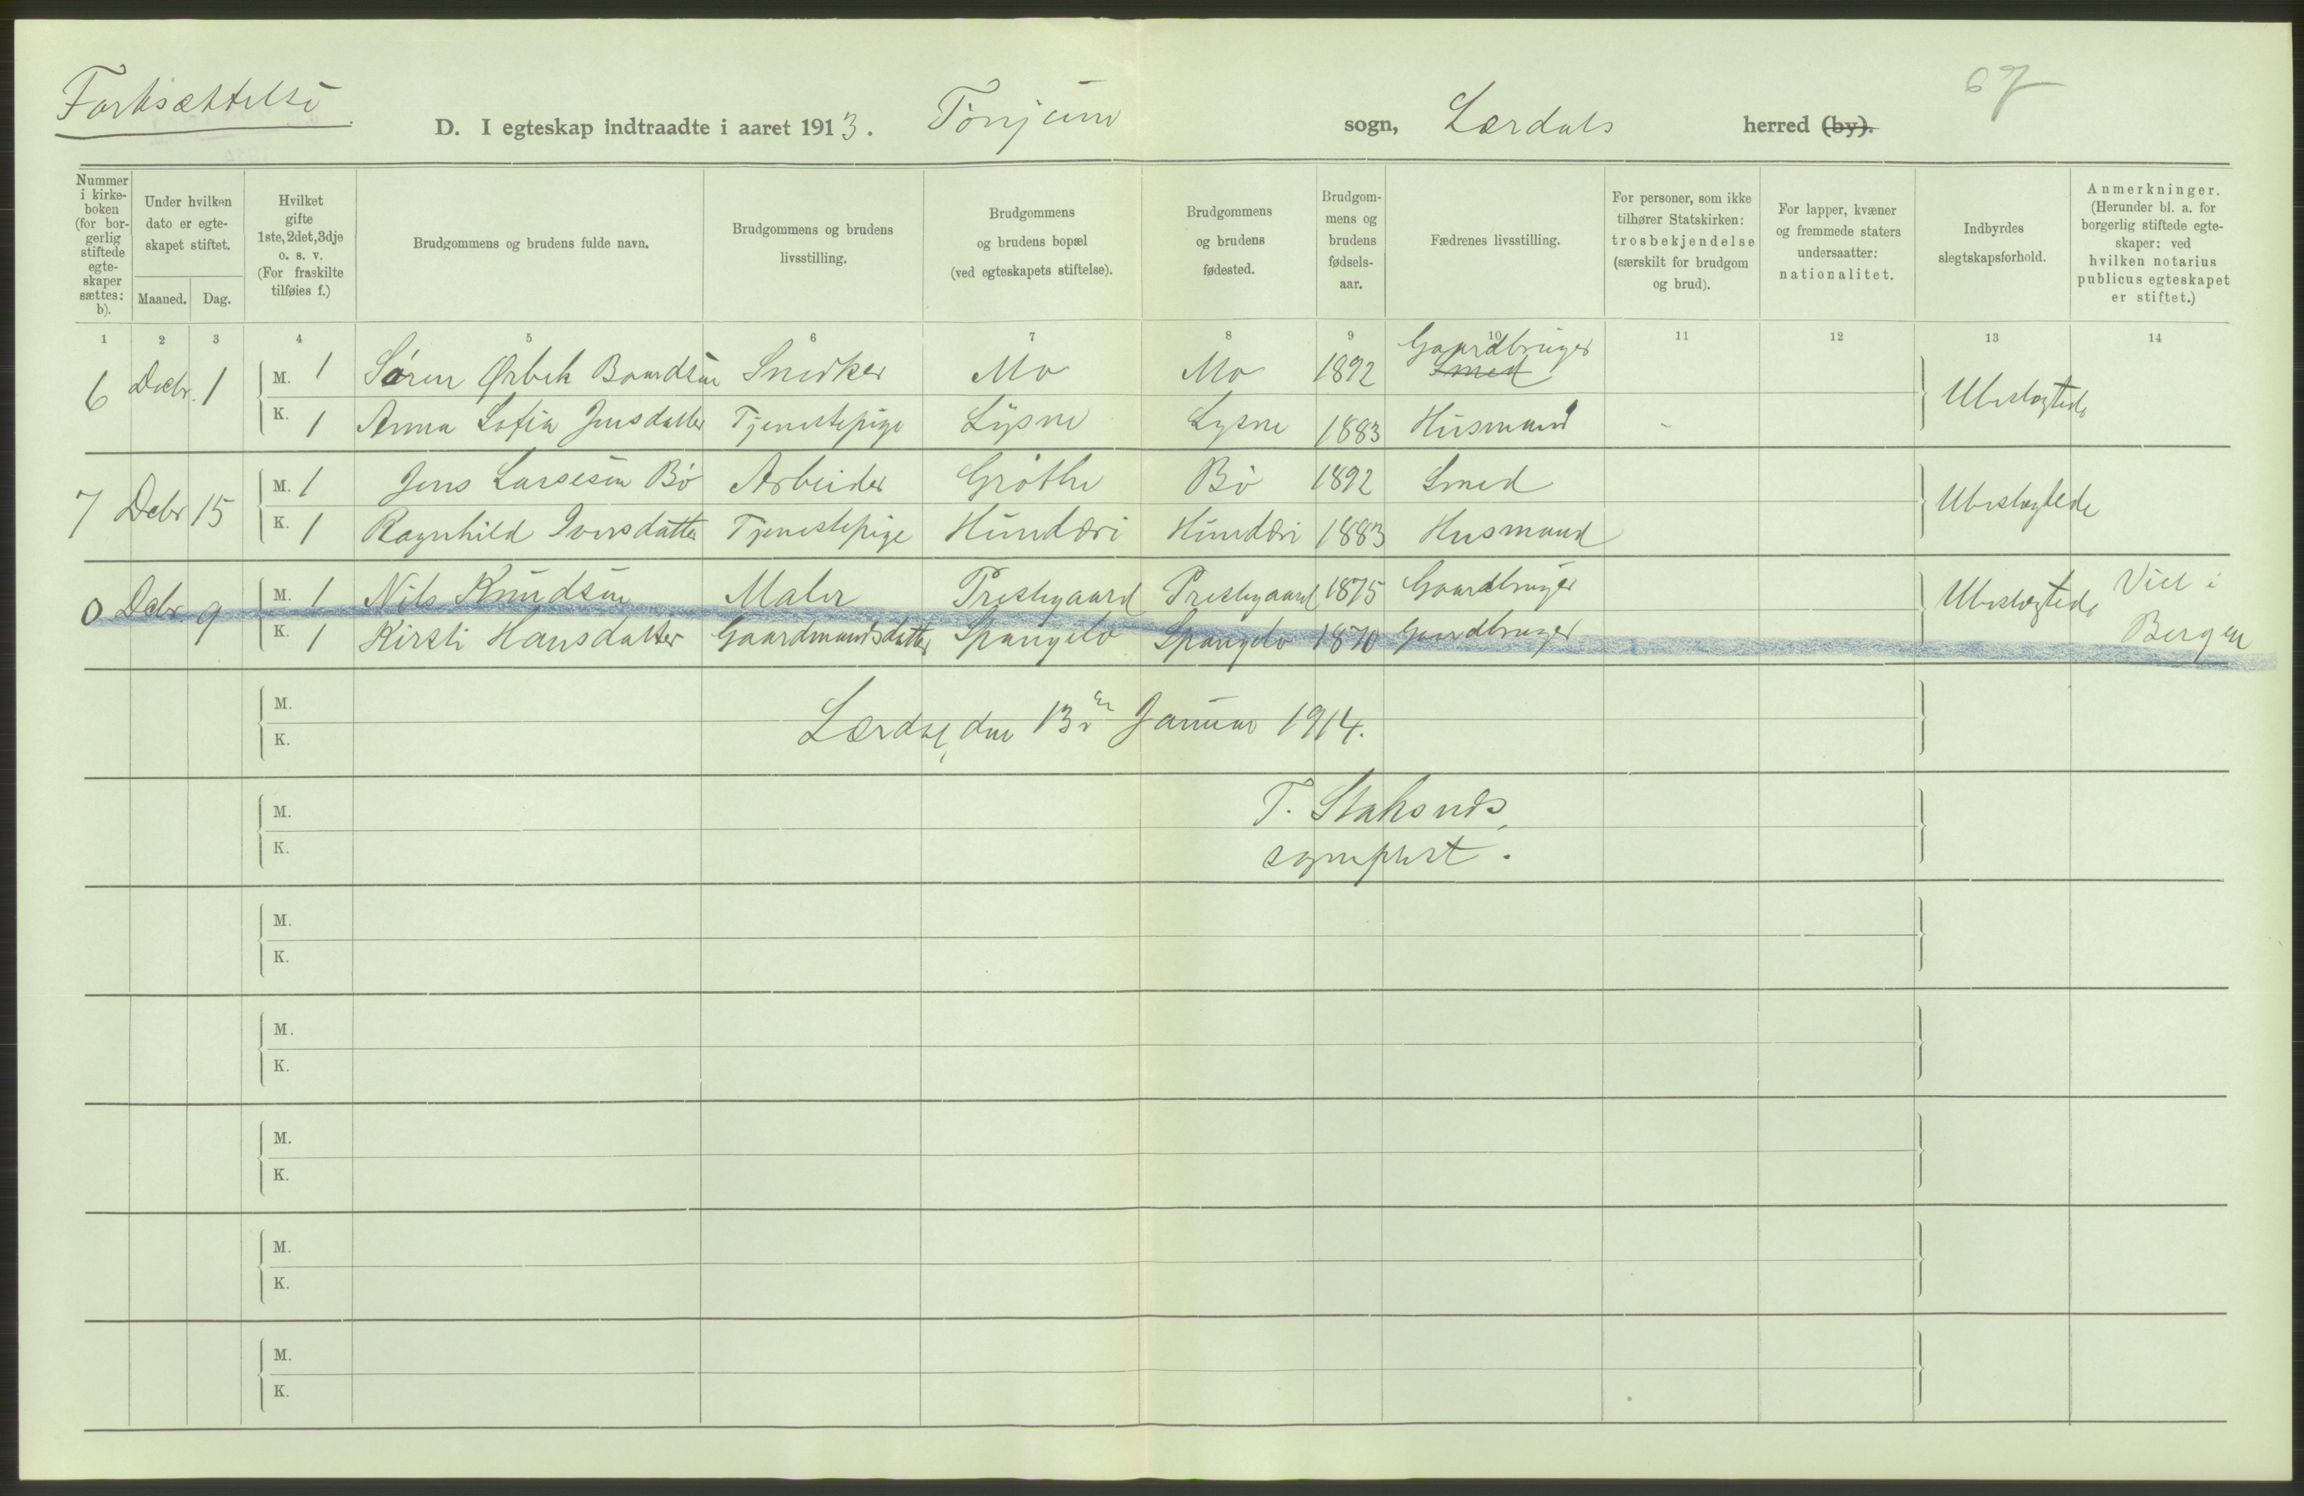 Fortsættelse.
67
D. I egteskap indtraadte i aaret 1913. Tønjum sogn, Lærdals herred (by).
Nummer i kirke-boken (for bor-gerlig stiftede egte-skaper sættes: b).
Under hvilken dato er egte-skapet stiftet.
Maaned. Dag.
Hvilket gifte 1ste, 2det, 3dje o. s. v. (For fraskilte tilføies f.)
Brudgommens og brudens fulde navn.
Brudgommens og brudens livsstilling.
Brudgommens og brudens bopæl (ved egteskapets stiftelse).
Brudgommens og brudens fødested.
Brudgom-mens og brudens fødsels-aar.
Fædrenes livsstilling.
For personer, som ikke tilhører Statskirken: trosbekjendelse (særskilt for brudgom og brud).
For lapper, kvæner og fremmede staters undersaatter: nationalitet.
Indbyrdes slegtskapsforhold.
Anmerkninger. (Herunder bl. a. for borgerlig stiftede egte-skaper: ved hvilken notarius publicus egteskapet er stiftet.)
1 2 3 4 5 6 7 8 9 10 11 12 13 14
6 Decbr. 1 M. 1 Søren Ørbek Baardsen Snedker Mo Mo 1892 Gaardbruger Smed Ubeslægtede
K. 1 Anna Sofia Jensdatter Tjenestepige Lysne Lysne 1883 Husmand
7 Decbr 15 M. 1 Jens Larsesen Bø Arbeider Grøthe Bø 1892 Smed Ubeslægtede
K. 1 Ragnhild Iversdatter Tjenestepige Hunderi Hunderi 1883 Husmand
0 Decbr 9 M. 1 Nils Knudsen Maler Prestegaard Prestegaard 1875 Gaardbruger Ubeslægtede Viet i
K. 1 Kirsti Hansdatter Gaardmandsdatter Spangelo Spangelo 1870 Gaardbruger Bergen
M.
K.
Lærdal, den 13de Januar 1914.
M.
T.
K.
sogneprest.
M.
K.
M.
K.
M.
K.
M.
K.
M.
K.